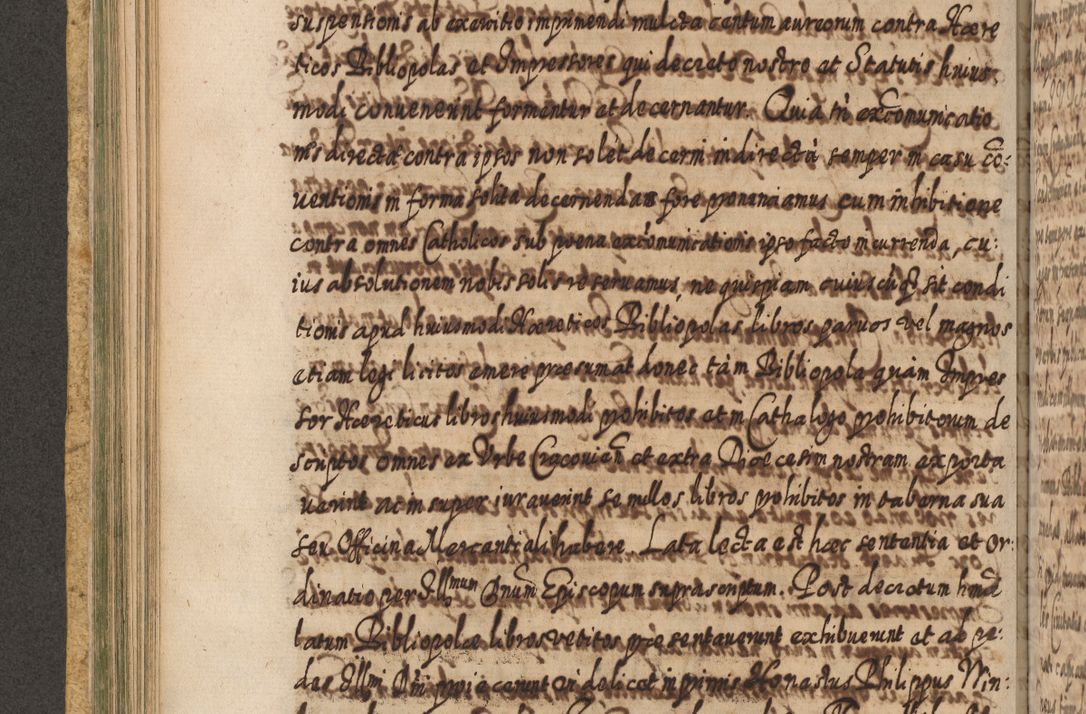 suspensionis ab exercitio imprimendi mulcta centum aureorum contra Hære
ticos Bibliopolas et Impressores qui decreto nostro et Statutis huius
modi convenerint formentur et decernantur. Quia tñ excõmunicatio
nis directa contra ipsos non solèt decerni indirectà semper in casu cõ:
uentionis in forma solita decernendam fore pronunciamus cum inhibitione
contra omnes Catholicos sub poena excõmunicationis ipso facto incurrenda, cu:
ius absolutionem nobis solis reservamus, ne quispiam cuiuscũq3 sit condi
tionis apud huiusmodi Hæreticos Bibliopolas libros parvos vel magnos
etiam lege licitos emere præsumat donec tàm Bibliopola quàm Impres
sor Hæreticus libros huiusmodi prohibitos et in Cathalogo prohibitorum de
scriptos omnes ex Urbe Cracovianã et extra Dioecesim nostram exporta
uerint ac insuper iuraverint se nullos libros prohibitos in taberna sua
seu Officina Mercantiali habere. Lata lecta est hæc sententia et or:
dinatio per Illmum Dnum Episcopum suprascriptum. Post decretum hmõi
latum Bibliopolæ libros vetitos præsentaverunt exhibuerunt et ad pe:
des Illm Dni proiecerunt videlicet in primis Honestus Philippus Win: